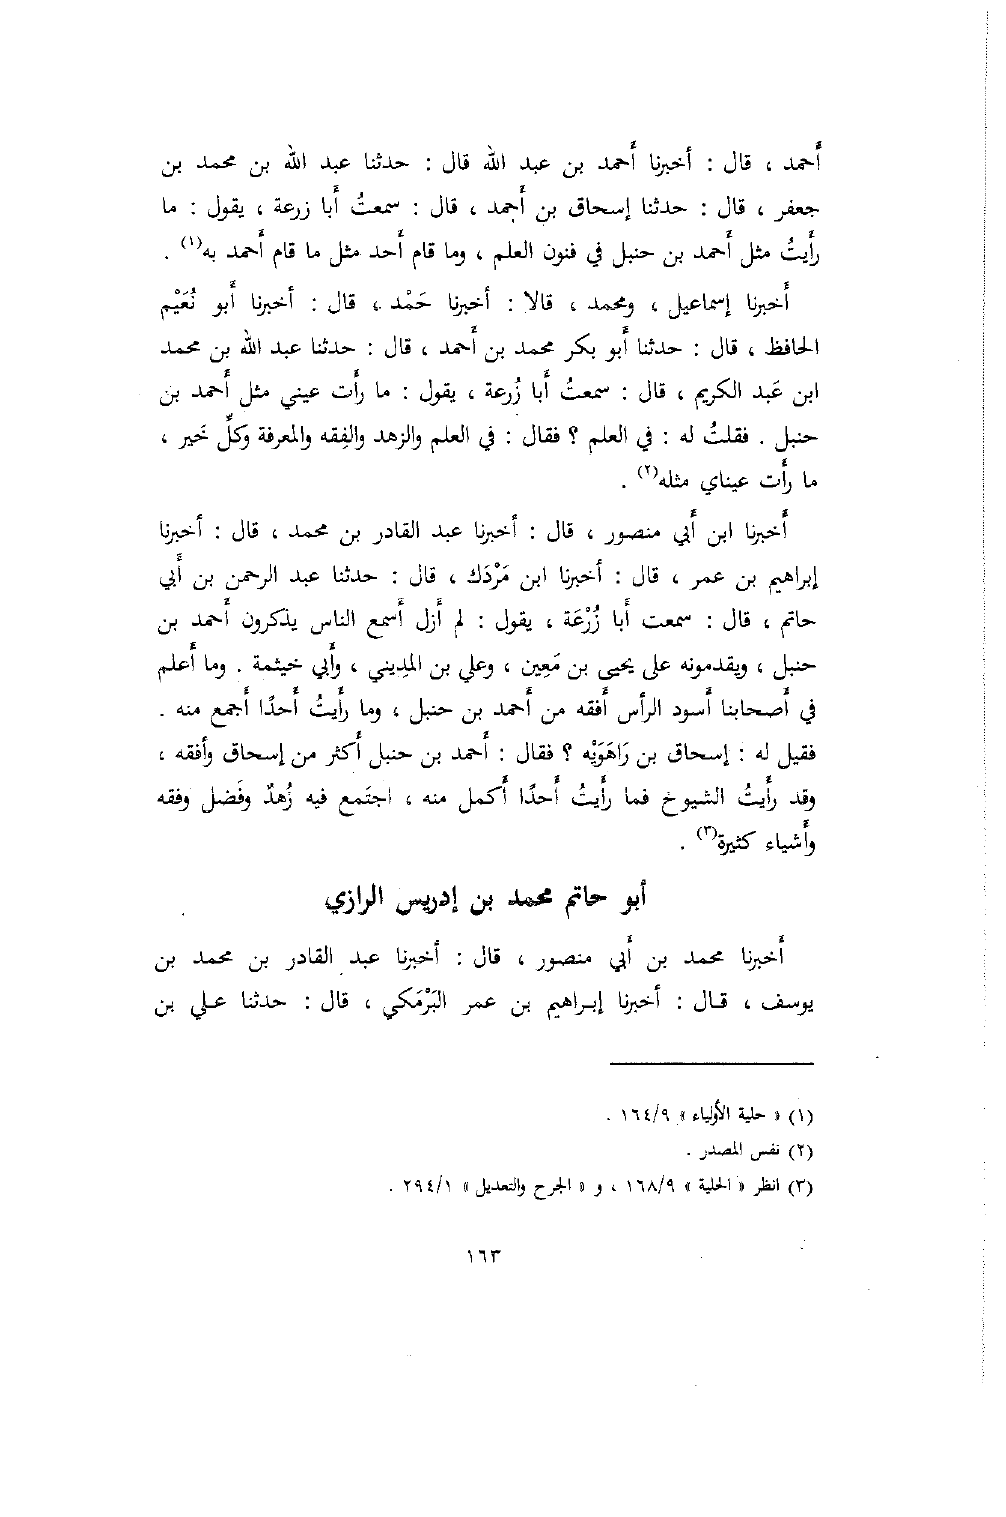 أَحمد ، قال : أخبرنا أَحمد بن عبد الله قال : حدثنا عبد الله بن محمد بن
جعفر ، قال : حدثنا إسحاق بن أَحمد ، قال : سمعتُ أَبا زرعة ، يقول : ما
رأَيتُ مثل أَحمد بن حنبل في فنون العلم ، وما قام أَحد مثل ما قام أَحمد به(١) .
أَخبرنا إسماعيل ، ومحمد ، قالا : أخبرنا حَمْد ، قال : أخبرنا أَبو نُعَيْم
الحافظ ، قال : حدثنا أَبو بكر محمد بن أَحمد ، قال : حدثنا عبد الله بن محمد
ابن عَبد الكريم ، قال : سمعتُ أَبا زُرعة ، يقول : ما رأَت عيني مثل أَحمد بن
حنبل . فقلتُ له : في العلم ؟ فقال : في العلم والزهد والفِقه والمعرفة وكلِّ خَير ،
ما رأَت عيناي مثله(٢) .
أَخبرنا ابن أَبي منصور ، قال : أخبرنا عبد القادر بن محمد ، قال : أخبرنا
إبراهيم بن عمر ، قال : أخبرنا ابن مَرْدَك ، قال : حدثنا عبد الرحمن بن أَبي
حاتم ، قال : سمعت أَبا زُرْعَة ، يقول : لم أَزل أَسمع الناس يذكرون أَحمد بن
حنبل ، ويقدمونه على يحيى بن مَعِين ، وعلي بن المديني ، وأَبي خيثمة . وما أَعلم
في أَصحابنا أَسود الرأس أَفقه من أَحمد بن حنبل ، وما رأَيتُ أَحدًا أَجمع منه .
فقيل له : إسحاق بن رَاهَوَيْه ؟ فقال : أَحمد بن حنبل أَكثر من إسحاق وأَفقه ،
وقد رأَيتُ الشيوخ فما رأَيتُ أَحدًا أَكمل منه ، اجتَمع فيه زُهدٌ وفَضل وفقه
وأَشياء كثيرة(٣) .
أبو حاتم محمد بن إدريس الرازي
أَخبرنا محمد بن أَبي منصور ، قال : أخبرنا عبد القادر بن محمد بن
يوسف ، قال : أخبرنا إبراهيم بن عمر البَرْمَكي ، قال : حدثنا علي بن
(١) « حلية الأولياء » ١٦٤/٩ .
(٢) نفس المصدر .
(٣) انظر « الحلية » ١٦٨/٩ ، و « الجرح والتعديل » ٢٩٤/١ .
١٦٣